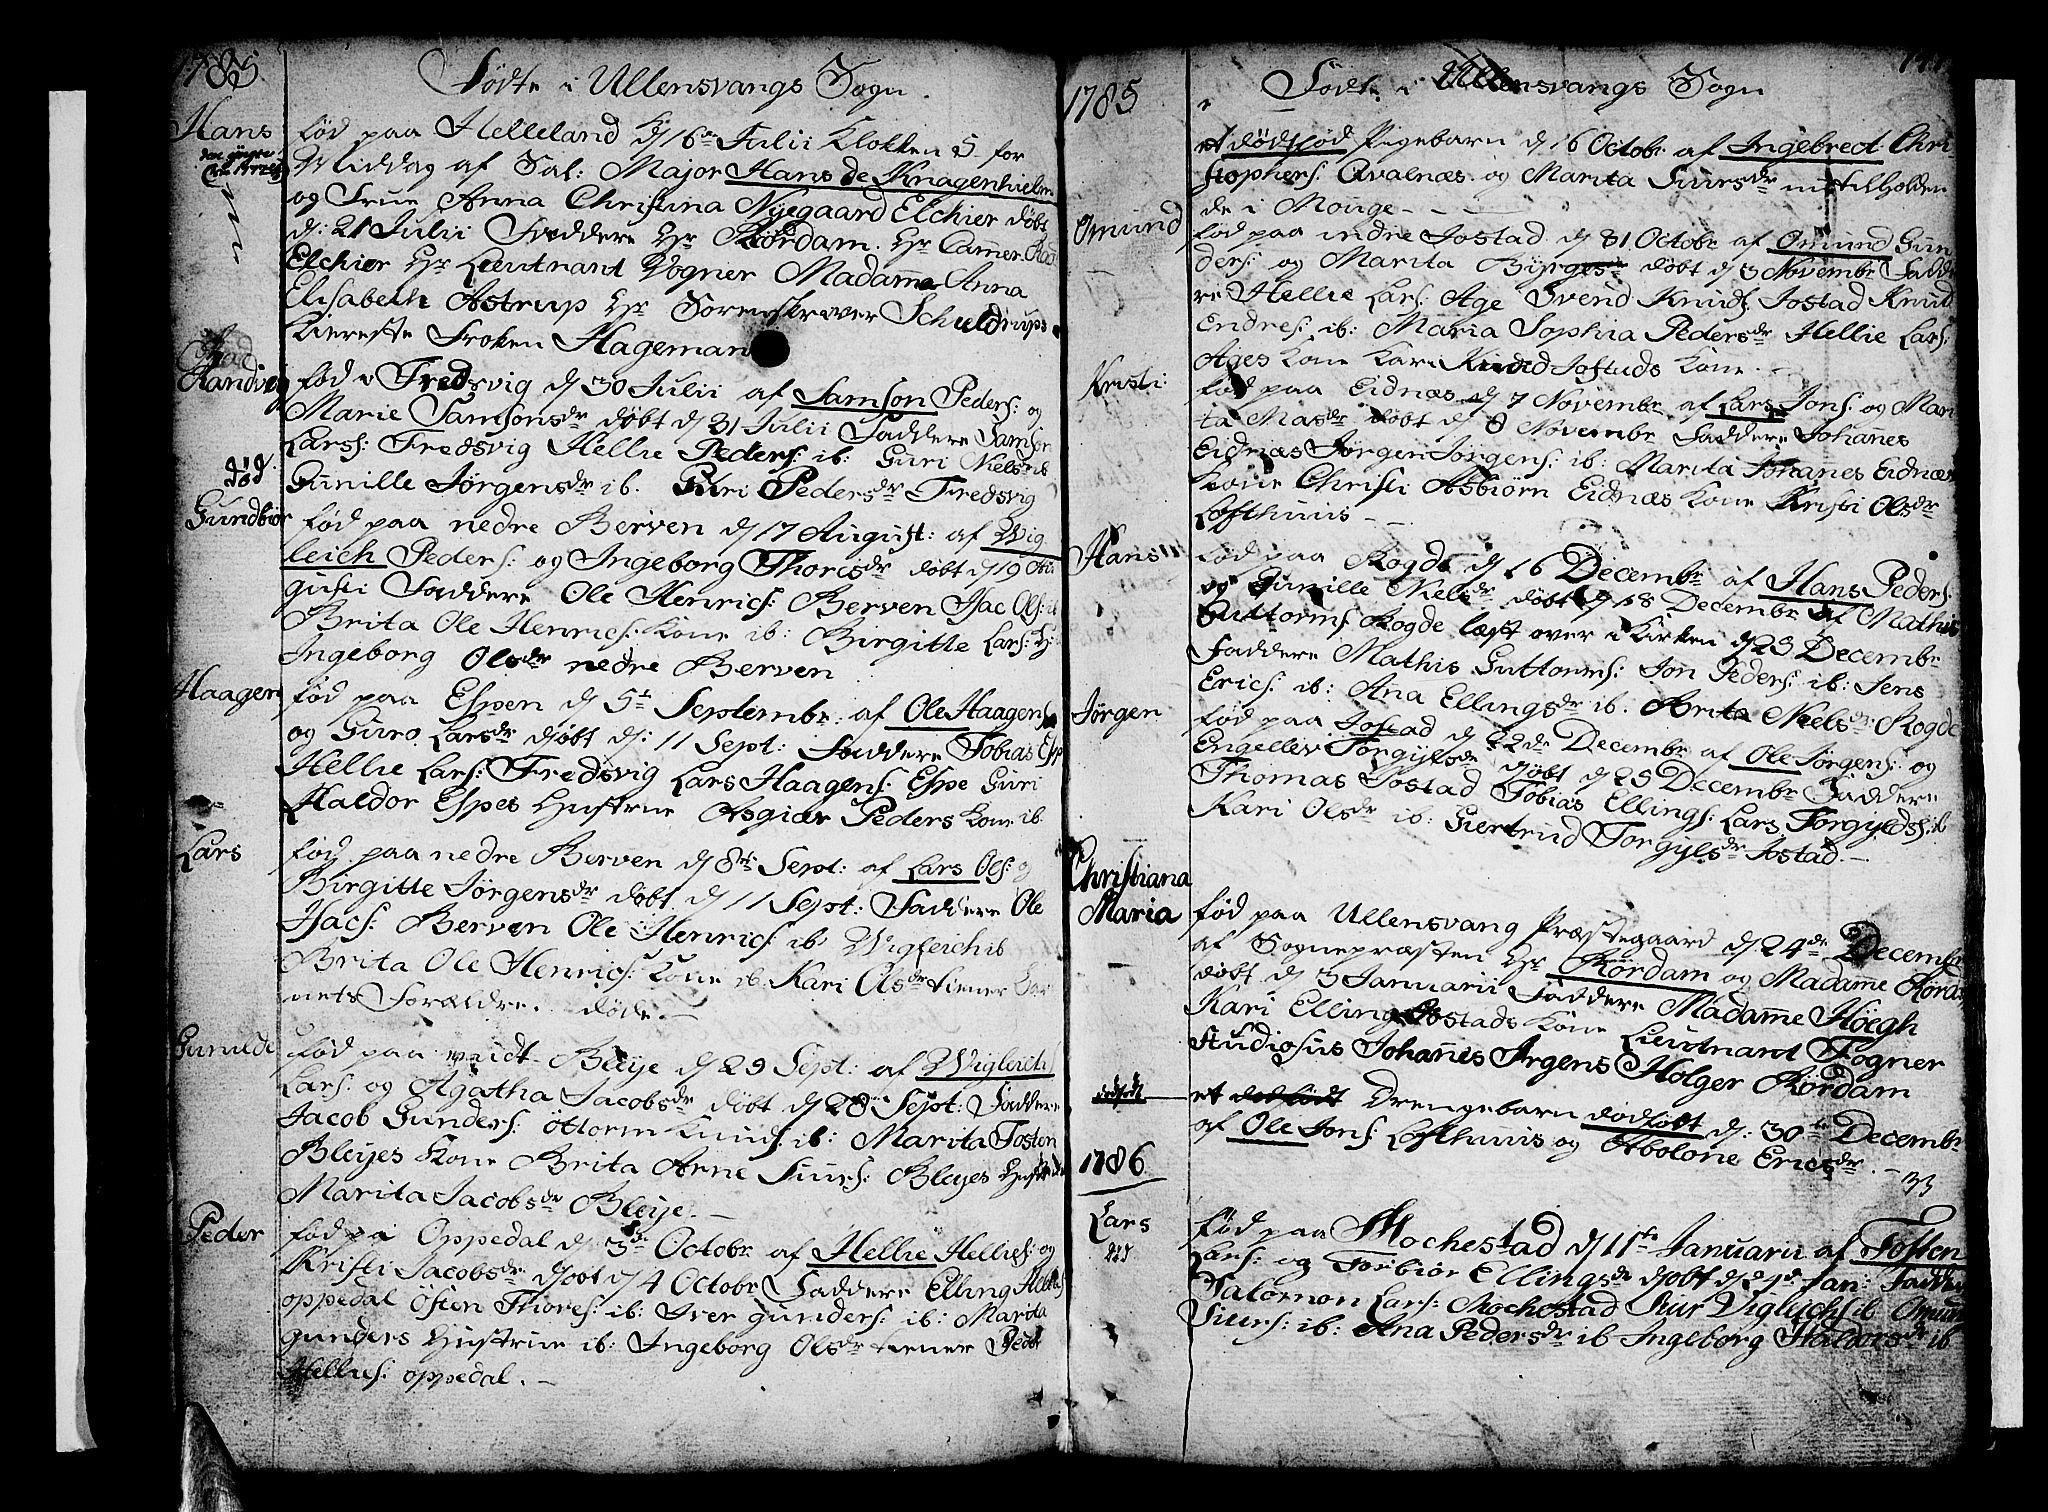 1785
Fødte i Ullensvangs Sogn.
Hans
fød paa Helleland d 16de Julii Klokken 5 for
Middag af Sal: Major Hans de Knagenhielm
og Frue Anna Christina Nyegaard Elchier døbt
d: 21 Julii Faddere Hr Rördam. Hr Camer Raad
Elchier Hr Lieutnant Vogner Madame Anna
Elisabeth Astrup Hr Sorenskriver Schuldrups
Kiereste Frøken Hageman
Randvig
fød i Fredsvig d 30 Julii af Samson Peders: og
Marie Samsonsdr døbt d 31 Julii Faddere Samson
Larss: Fredsvig Hellie Peders: ib: Guri Nielsdr ib
død.
Gunille Jørgensdr ib. Guri Pedersdr Fredsvig
Gundbiør
fød paa nedre Berven d 17 August: af Wig
leich Peders: og Ingeborg Thoresdr døbt d 19 Au
gusti Faddere Ole Henrics: Berven Isac Ols: ib
Brita Ole Henrics: Kone ib: Birgitte Lars: H:
Ingeborg Olsdr nedre Berven
Haagen
fød paa Espen d 5t Septembr: af Ole Haagens
og Guro Larsdr døbt d: 11 Sept: Faddere Tobias Esp
Hellie Lars: Fredsvig Lars Haagens: Espe Guri
Haldor Espes Hustrue Asgiær Peders Kone ib.
Lars
fød paa nedre Berven d 8de Sept: af Lars Ols: og
Birgitte Jørgensdr døbt d 11 Sept: Faddere Ole
Isacs: Berven Ole Henrics: ib: Wigleich ib
Brita Ole Henrics: Kone ib. Kari Olsdr tiener Bar
nets Forældre. døde.-
Gunilde
fød paa Bleye d 29 Sept: af Wigleich
Lars: og Agatha Jacobsdr døbt d 28 Sept: Faddere
Jacob Gunders: öttorm Knuds: ib: Marita Tosten
Bleyes Kone Brita Arne Siurs: Bleyes Hustrue
Marita Jacobsdr Bleye.-
Peder
fød på Oppedal d 3de Octobr af Hellie Hellies: og
Kristi Jacobsdr døbt d 4 Octobr Faddere Elling Hellies
oppedal Østen Thores: ib: Iver gunders: ib: Marita
gunders Hustrue ib: Ingeborg Olsdr tiener Peder
Hellies: oppedal.-
1785
Fødte i Ullensvangs Sogn
et dødfød Pigebarn d 16 Octobr af Ingebrect Chri
stophers: Avalnæs og Marita Siursdr
de i Mouge-
Omund
fød paa indre Jostad d 31 Octobr af Omund Gun
ders: og Marita Byrges døbt d 3 Novembr Fadde
re Hellie Lars: Age Svend Knuds: Jostad Knud
Endres: ib: Maria Sophia Pedersdr Hellie Lars:
Ages Kone Kari Knud Jostads Kone.-
Kristi
fød paa Eidnæs d 7 Novembr af Lars Jons: og Mari
ta Masdr døbt d 8 Novembr Faddere Johannes
Eidnæs Jørgen Jørgens: ib: Marita Johanes Eidnæs
Kone Christi Asbiørn Eidnæs Kone Kristi Olsdr
Lofthuus-
Hans
fød paa Rogde d 16 Decembr af Hans Peders:
og Gunille Nielsdr døbt d 18 Decembr af Mathis
Guttorms Rogde læst over i Kirken d 23 Decembr
Faddere Mathis Guttorms: Jon Peders: ib: Jens
Erics: ib: Ana Ellingsdr ib. Brita Nielsdr Rogde
Jørgen
fød paa Jostad d 22de Decembr af Ole Jørgens: og
Engellev Torgylsdr døbt d 25 Decembr Faddere
Thomas Jostad Tobias Ellings: Lars Torgyels: ib
Kari Olsdr ib: Giertrud Torgylsdr Jostad.-
Christiana
Maria
fød paa Ullensvang Præstegaard d 24de Decembr
af Sognepræsten Hr Rördam og Madame Rörda
døbt d 3 Januarii Faddere Madame Høegh
Kari Elling Jostads Kone Lieutnant Fogner
Studiosus Johannes Jrgens Holger Rördam
dødfødt
et dødfødt Drengebarn dødfødt d: 30te Decembr
af Ole Jons: Lofthuus og Abolone Ericsdr.-
33
1786
Lars
død
fød paa Mochestad d 11te Januarii af Tosten
Lars: og Torbiør Ellingsdr døbt d 21d Jan: Fadde
Salomon Lars: Mochestad Siur Vigleichs ib Omun
Siurs: ib: Ana Pedersdr ib Ingeborg Haldorsdr ib